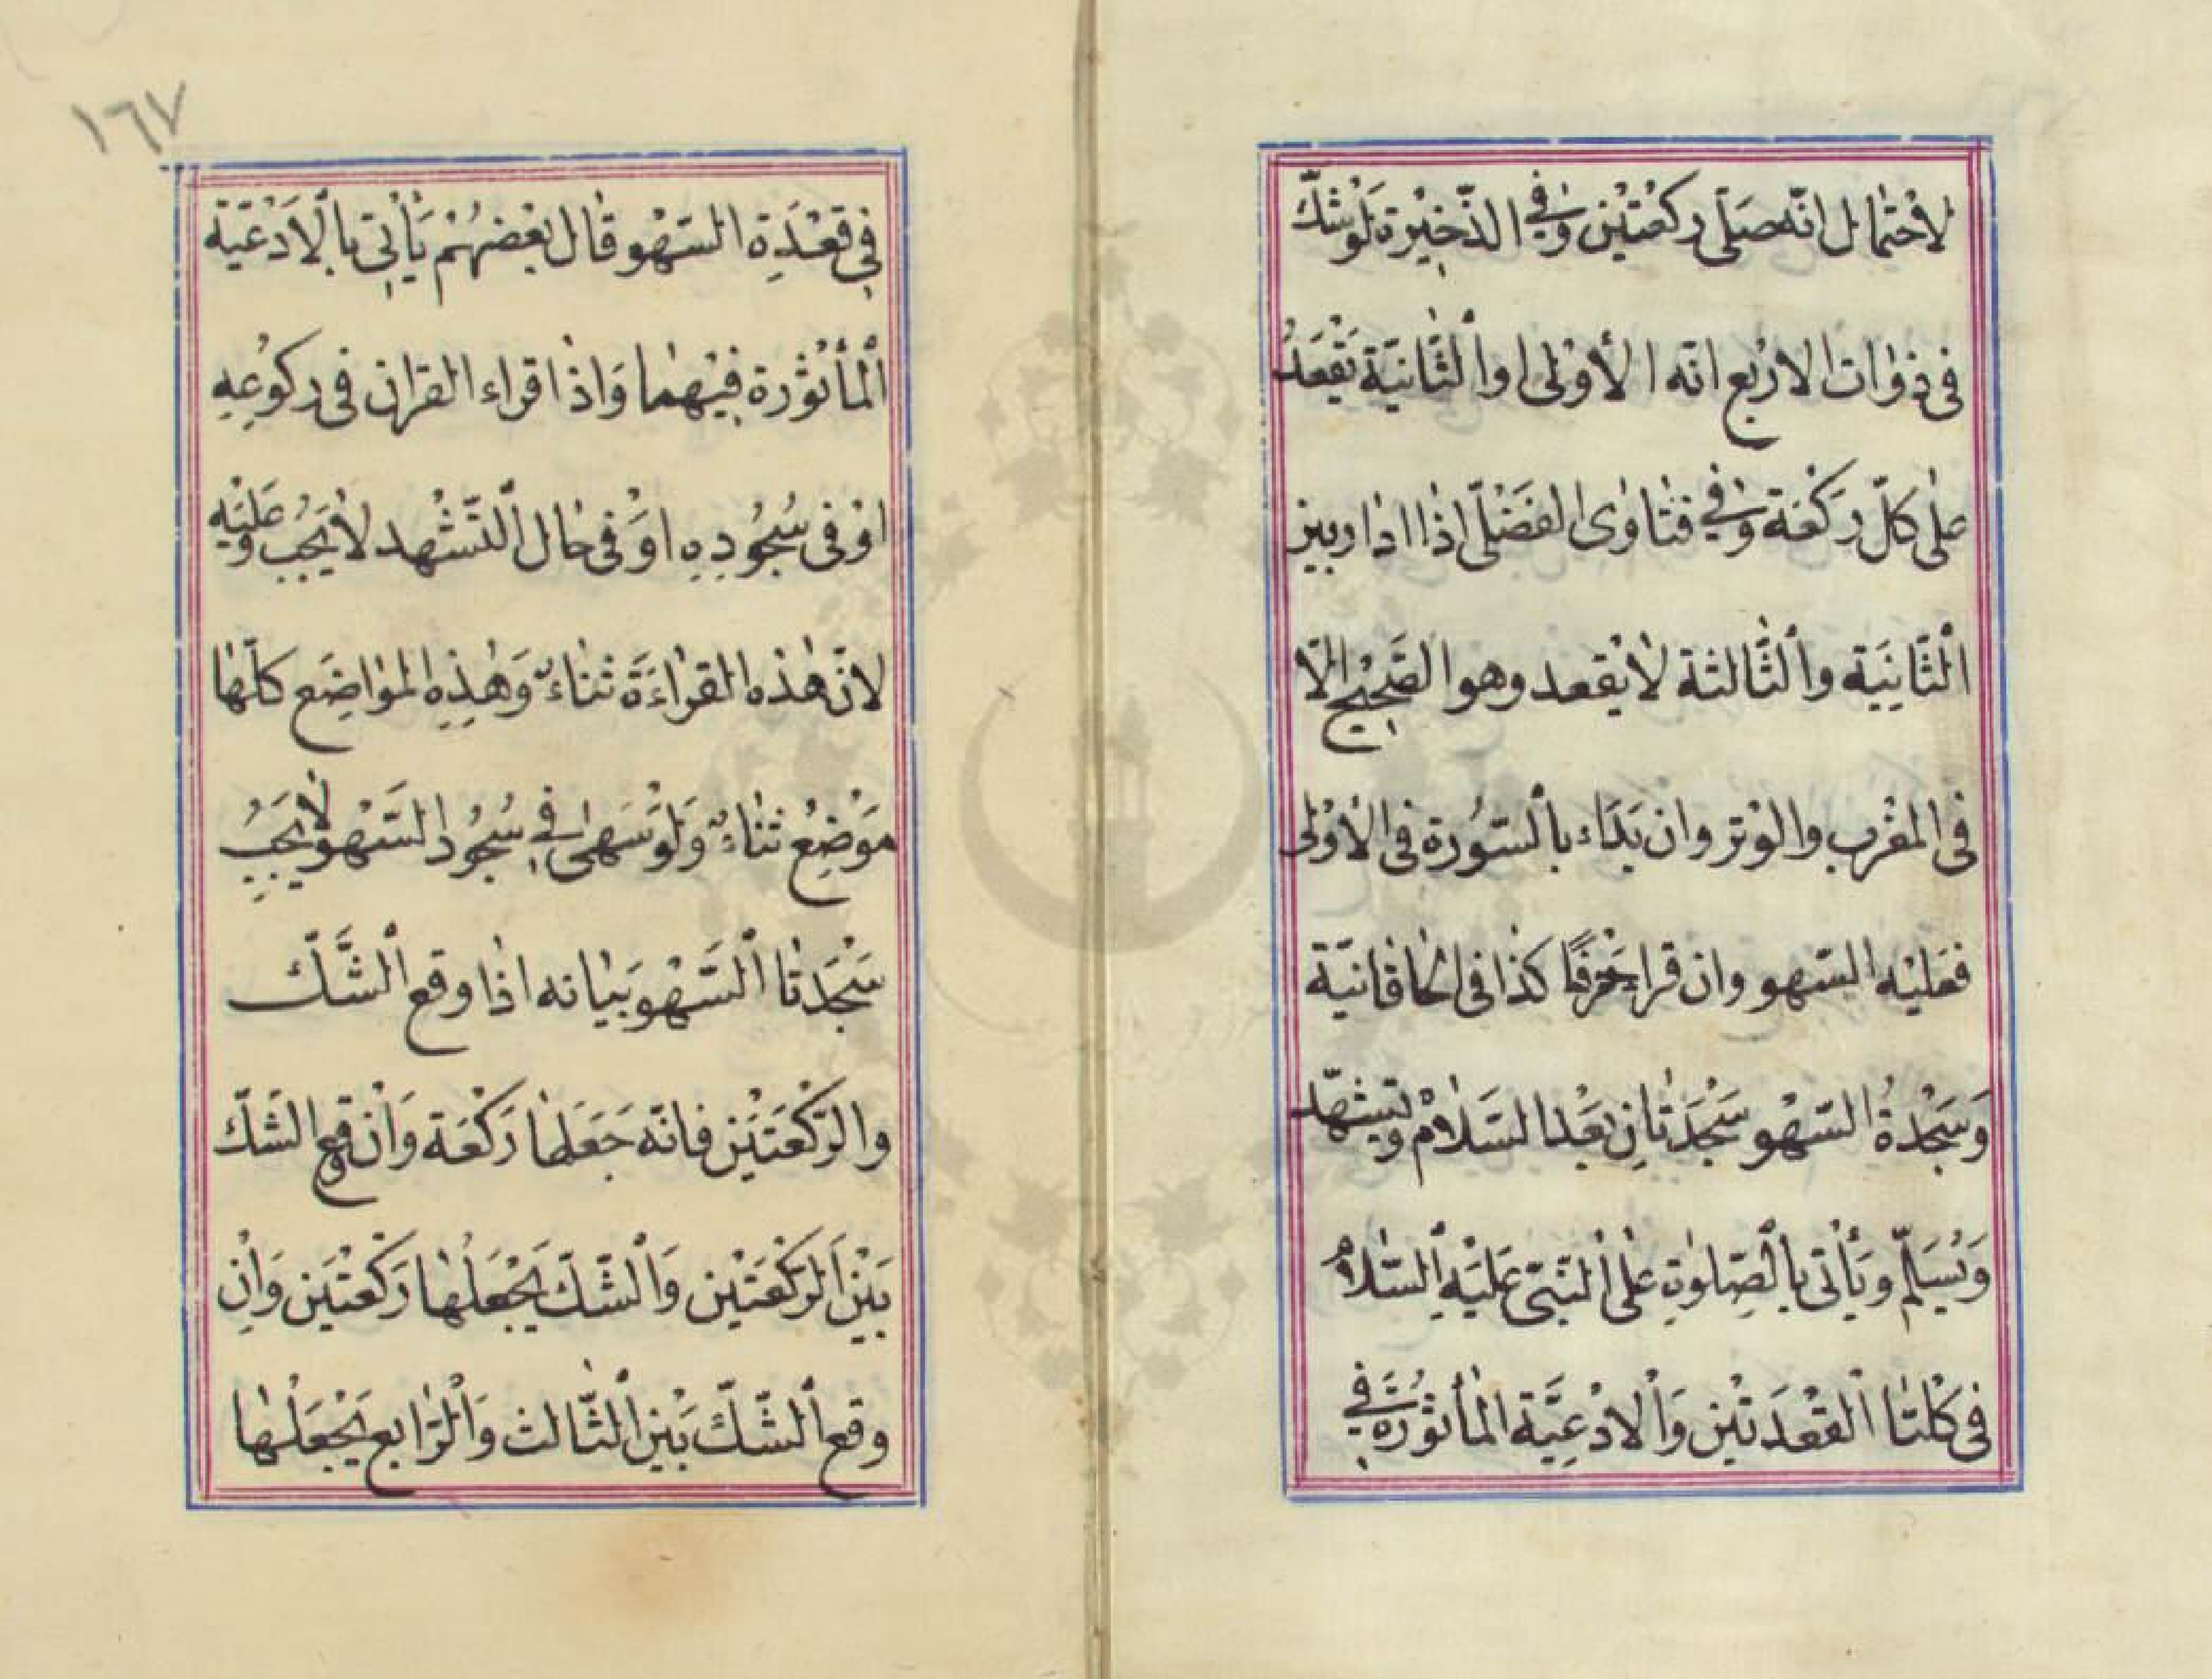 لاحْتِمٰال انّه صَلّى ركعْتيْن وٰفى الذّخِيْرة لَوْشكّ
فى ذوٰات الارْبع انّه الأوْلى اوالثّانيّة يَقْعَدُ
على كلّ رَكْعَة وٰفى فتٰاوٰى الفَضْلّى اذٰا ادٰاربين
الْثّانِيَة واْلثّالثة لاٰيقْعد وهو الصَّحِيْح الاّ
فى المغْرب والوْتر وان بَدَاء باْلسّوُرة فى الأوْلى
فعَليْه السّهو وان قراء حَرْفًا كذا فى الخٰاقٰانيّة
وَسَجْدةُ السّهْو سَجْدَتٰانِ بَعْد السَلاٰمْ ويتشهّد
وَيُسَلّم ويَأتى باْلصّلوٰةِ علٰى اْلنّبىّ عَليْهِ اْلسّلاٰمُ
فى كلْتٰا اْلقعْدَتيْن وَاْلادْعِيَّة الْمأثوُرة فى
فِى قعْدَةِ السّهْو قٰال بَعْضهُمْ يَأتِى باْلاَدْعَيَة
اْلمأثوُرة فِيْهمٰا وَاذٰا قراء القران فى ركوُعِهِ
اوْ فى سُجُودِهِ اوْ فى حٰال اْلتّشَهْد لاٰيَجُب عَليْهِ
لانّ هٰذه القرٰاءَة ثنٰاءٌ وَهٰذِهِ الموٰاضِع كلّهٰا
موْضِعُ ثنٰاءٌ وَلوْسَهىٰ فى سُجُود السَّهْو لاٰيَجَبُ
سَجْدَتٰا اْلسَّهْو بَيٰانه اذٰا وقع اْلشّكّ
والرّكْعَتيْن فانّه جَعَلهٰا رَكْعَة وَانْ وقع الشّكّ
بَيْن اْلرّكْعَتيْن وَاْلشّكّ يَجْعَلُهٰا رَكْعتيَن وَانْ
وقع اْلشّكّ بَيْن اْلثّالث وَاْلرّٰابع يَجْعَلُهٰا
١٦٧